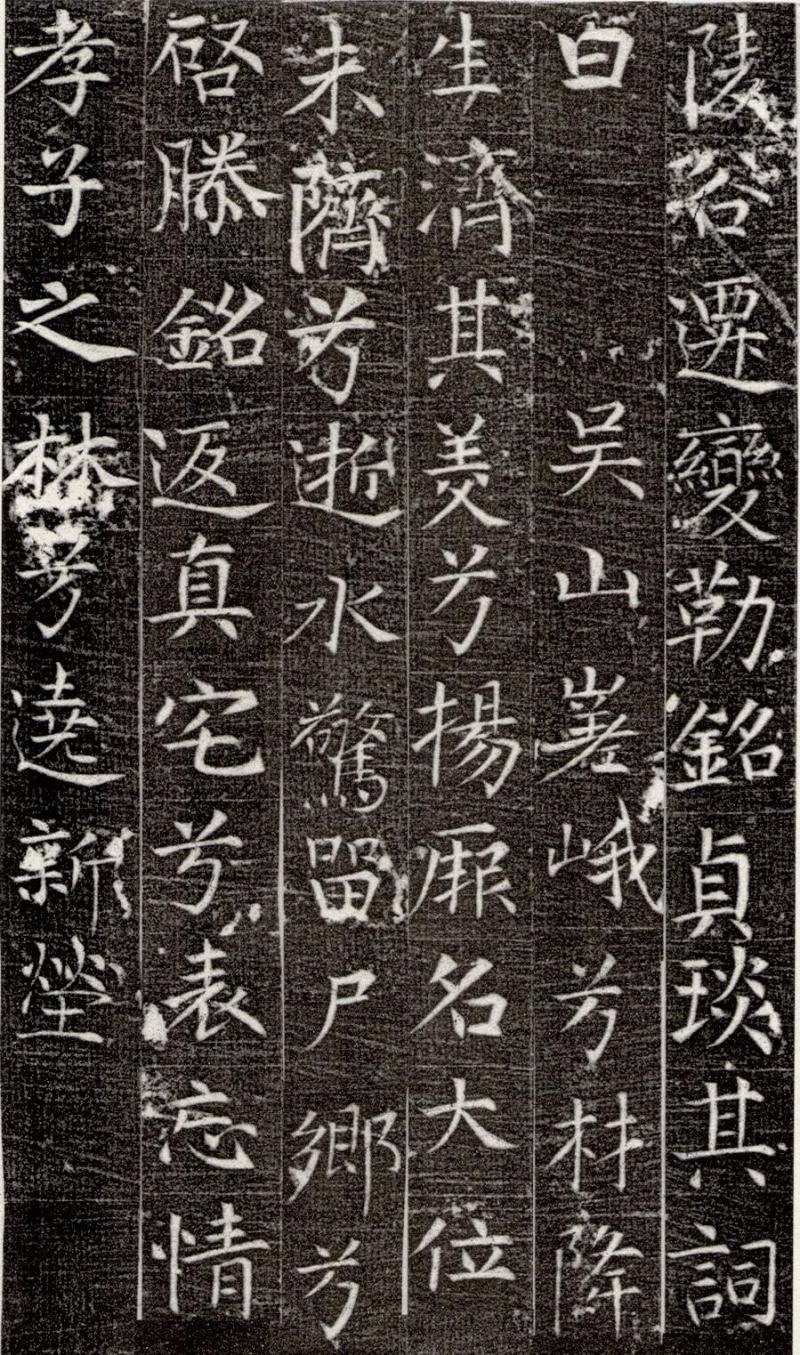 陵谷遷變勒銘貞琰其詞
曰吴山嵳峨兮材降
生濟其羙兮揚厥名大位
未隮兮逝水驚留尸鄉兮
啓滕銘返真宅兮表忘情
孝子之兮遶新塋